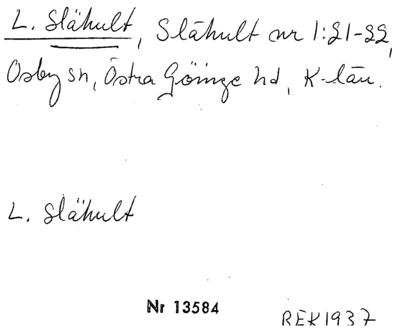 L. Slähult, Slähult nr 1:21-22,
Osby sn, Östra Göinge hd, K-län.
L. Slähult
Nr 13584
REK1937